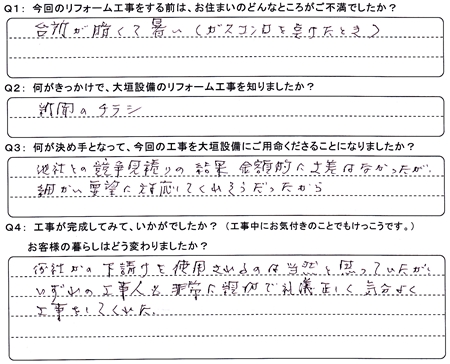 Q1： 今回のリフォーム工事をする前は、お住まいのどんなところがご不満でしたか？
台所が暗くて暑い（ガスコンロを点けたとき）
Q2： 何がきっかけで、大垣設備のリフォーム工事を知りましたか？
新聞のチラシ
Q3： 何が決め手となって、今回の工事を大垣設備にご用命くださることになりましたか？
他社との競争見積りの結果 金額的に大差はなかったが、
細かい要望に対応してくれそうだったから
Q4： 工事が完成してみて、いかがでしたか？ （工事中にお気付きのことでもけっこうです。）
お客様の暮らしはどう変わりましたか？
何社かの下請けを使用されるのは当然と思っていたが、
いずれの工事人も非常に親切で礼儀正しく気分よく
工事をしてくれた。